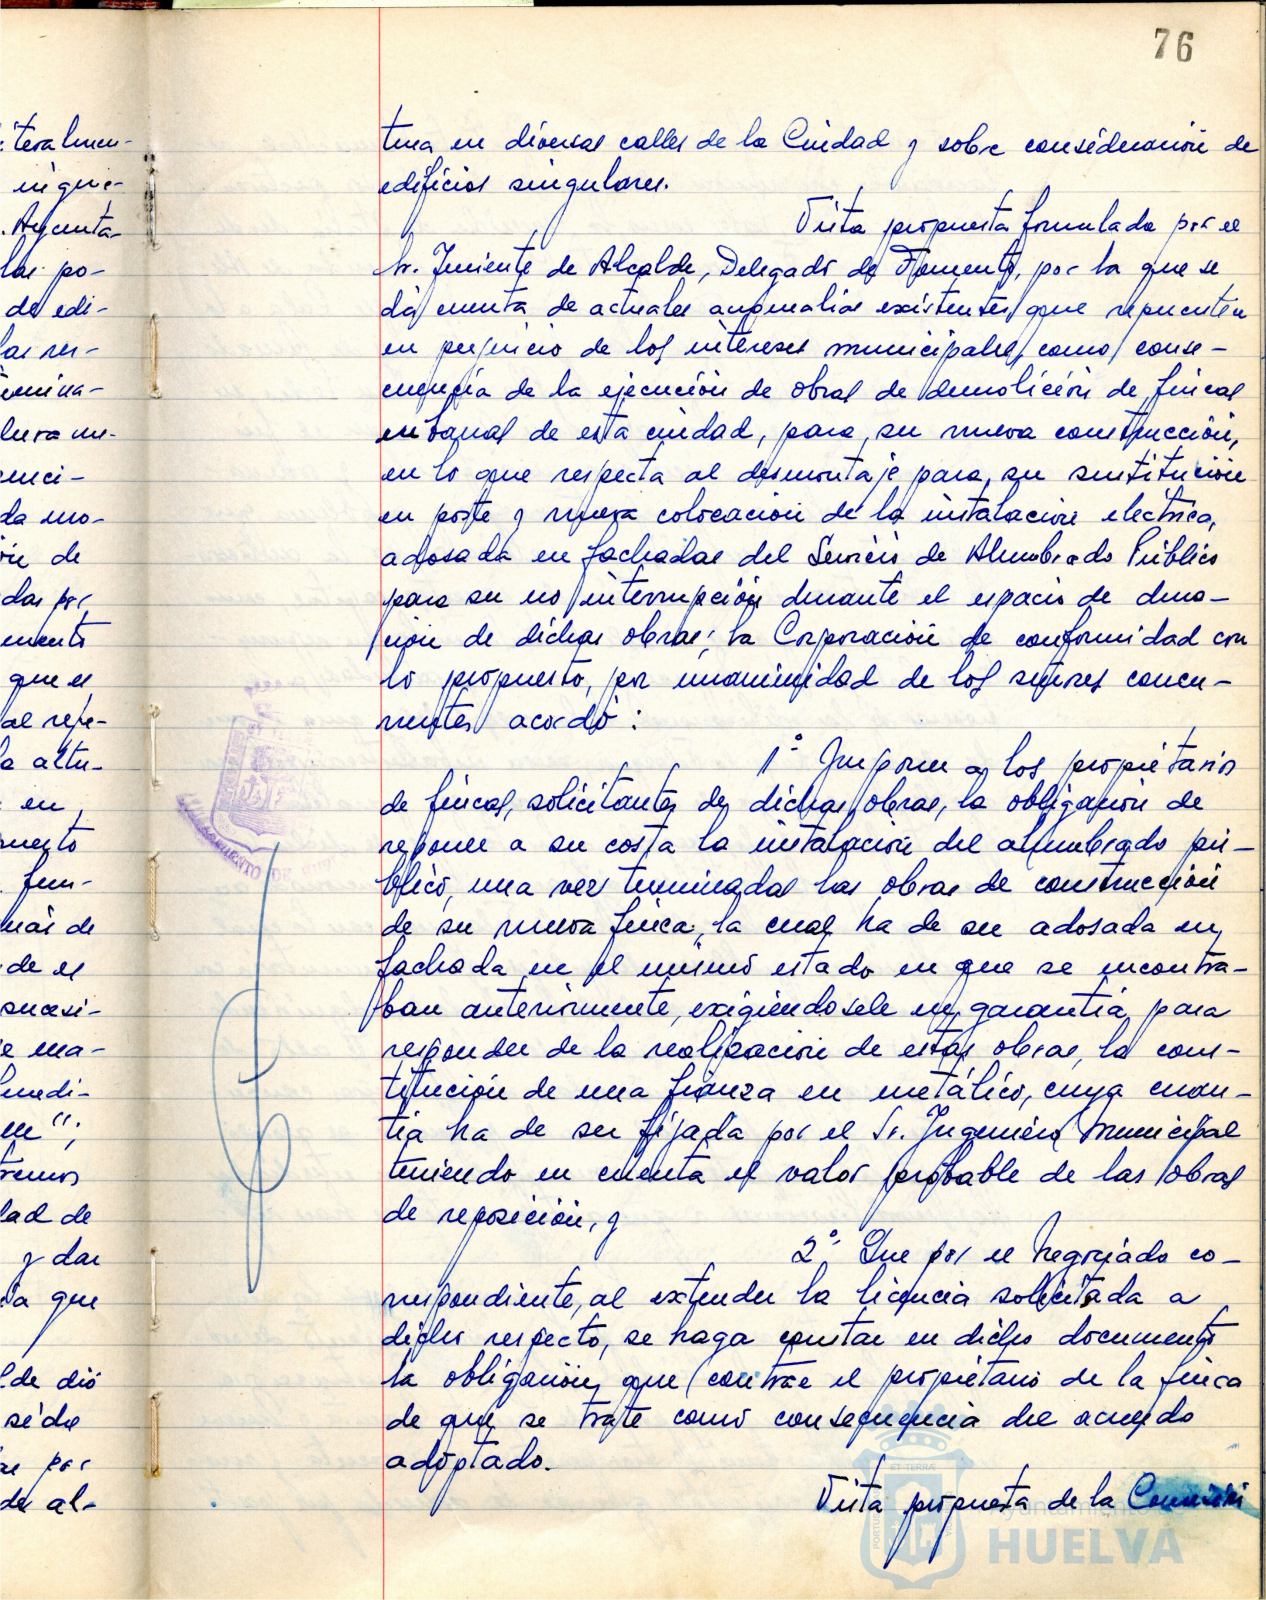 76
tura en diversas calles de la Ciudad y sobre consideración de
edificios singulares.
Vista propuesta formulada por el
Sr. Teniente de Alcalde, Delegado de Fomento, por la que se
dá cuenta de actuales anomalías existentes, que repercuten
en perjuicio de los intereses municipales, como conse-
cuencia de la ejecución de obras de demolición de fincas
urbanas de esta ciudad, para su nueva construcción,
en lo que respecta al desmontaje para su sustitución
en poste y nueva colocación de la instalación eléctrica,
adosada en fachadas del Servicio de Alumbrado Público
para su no interrupción durante el espacio de dura-
ción de dichas obras; la Corporación de conformidad con
lo propuesto, por unanimidad de los señores concu-
rrentes acordó:
1º Imponer a los propietarios
de fincas, solicitantes de dichas obras, la obligación de
reponer a su costa la instalación del alumbrado pú-
blico, una vez terminadas las obras de construcción
de su nueva finca, la cual ha de ser adosada en
fachada en el mismo estado en que se encontra-
ban anteriormente, exigiendosele en garantía para
responder de la realización de estas obras, la cons-
titución de una fianza en metálico, cuya cuan-
tía ha de ser fijada por el Sr. Ingeniero Municipal
teniendo en cuenta el valor probable de las obras
de reposición, y
2º Que por el Negociado co-
rrespondiente, al extender la licencia solicitada a
dicho respecto, se haga constar en dicho documento
la obligación que contrae el propietario de la finca
de que se trate como consecuencia del acuerdo
adoptado.
Vista propuesta de la Comisión
iteralmen-
las po-
de edi-
da mo-
ón de
das por
que el
la altu-
en
más de
de el
sucesi-
lad de
y dar
que
de dió
por
de al-
Ayuntamiento de
HUELVA